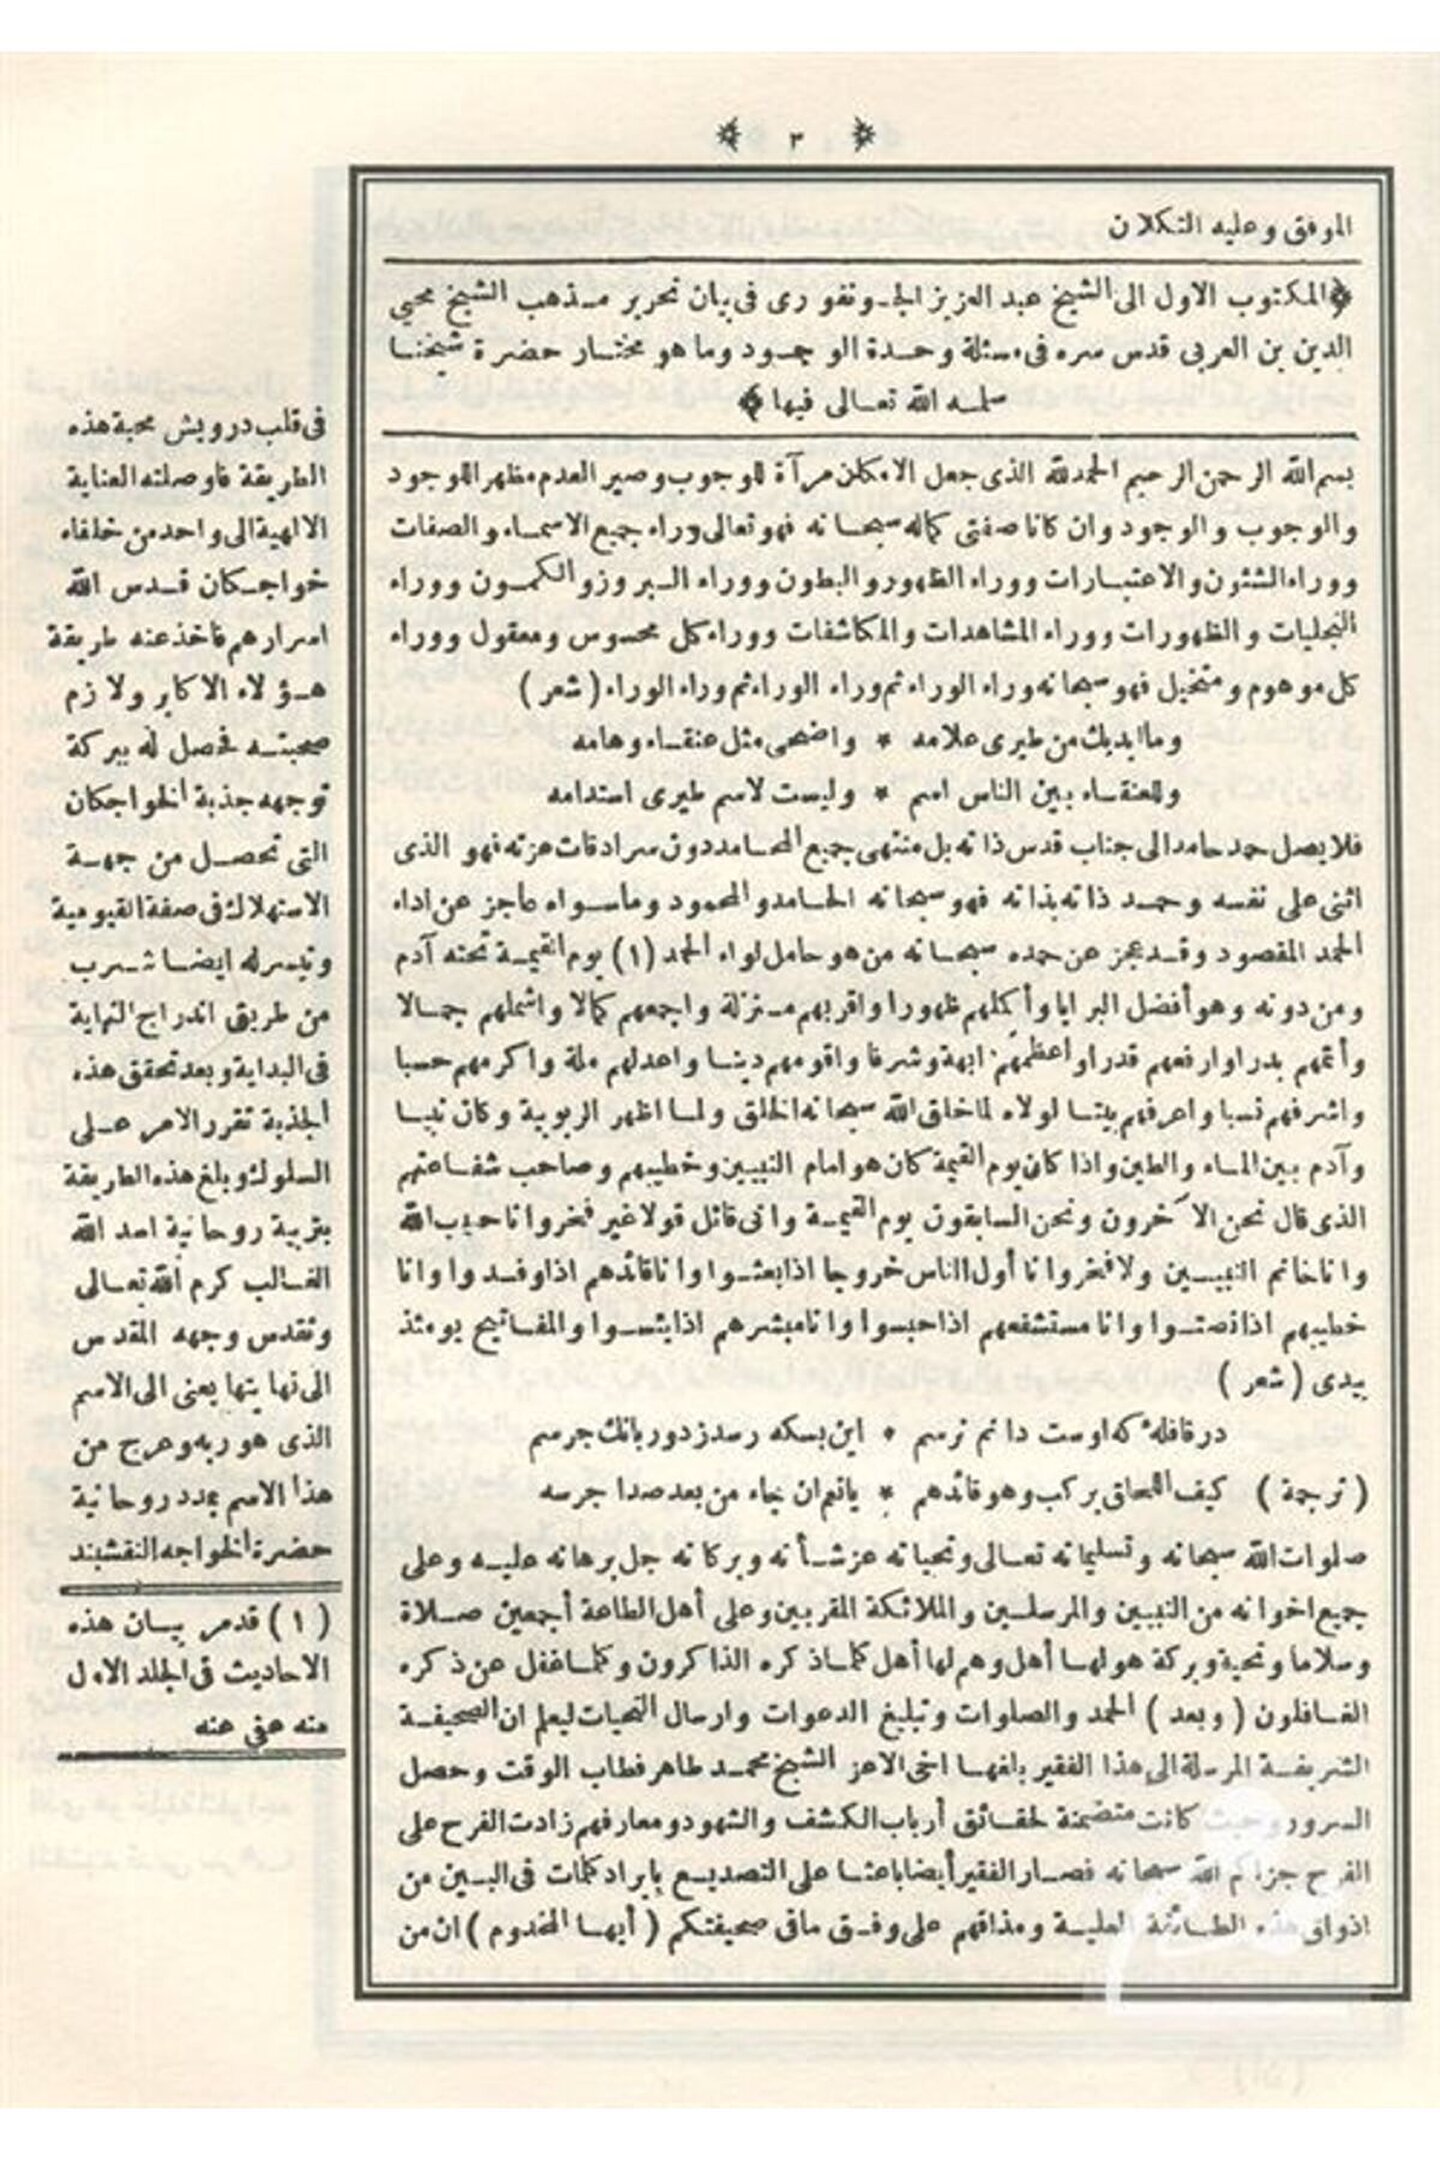 ٣
الموفق وعليه التكلان
المكتوب الاول الى الشيخ عبد العزيز الجونفورى فى بيان تحرير مذهب الشيخ محيي
الدين بن العربى قدس سره فى مسئلة وحدة الوجود وما هو مختار حضرة شيخنا
سلمه الله تعالى فيها
بسم الله الرحمن الرحيم الحمدلله الذى جعل الامكان مرآة للوجوب وصير العدم مظهر اللوجود
والوجوب والوجود وان كانا صفتى كماله سبحانه فهو تعالى وراء جميع الاسماء والصفات
ووراء الشئون والاعتبارات ووراء الظهور والبطون ووراء البروز والكمون ووراء
التجليات والظهورات ووراء المشاهدات والمكاشفات ووراء كل محسوس ومعقول ووراء
كل موهوم ومتخيل فهو سبحانه وراء الوراء ثم وراء الوراء ثم وراء الوراء (شعر)
وما ابديك من طيرى علامه * واضحى مثل عنقاء وهامه
وللعنقاء بين الناس اسم * وليست لاسم طيرى استدامه
فلا يصل حمد حامد الى جناب قدس ذاته بل منتهى جميع المحامد دون سرادقات عزته فهو الذى
اثنى على نفسه وحمد ذاته بذاته فهو سبحانه الحامد والمحمود وما سواه عاجز عن اداء
الحمد المقصود وقد عجز عن حمده سبحانه من هو حامل لواء الحمد (١) يوم القيمة تحته آدم
ومن دونه وهو أفضل البرايا وأكملهم ظهورا واقربهم منزلة واجمعهم كمالا واشملهم جمالا
وأتمهم بدرا وارفعهم قدرا واعظمهم ابهة وشرفا واقومهم دينا واعدلهم ملة واكرمهم حسبا
واشرفهم نسبا واعرفهم بيتا لولاه لما خلق الله سبحانه الخلق ولما اظهر الربوبية وكان نبيا
وآدم بين الماء والطين واذا كان يوم القيمة كان هو امام النبيين وخطيبهم وصاحب شفاعتهم
الذى قال نحن الآخرون ونحن السابقون يوم القيمة وانى قائل قولا غير فخر وانا حبيب الله
وانا خاتم النبيين ولا فخر وانا أول الناس خروجا اذا بعثوا وانا قائدهم اذا وفدوا وانا
خطيبهم اذا نصتوا وانا مستشفعهم اذا حبسوا وانا مبشرهم اذا يئسوا والمفاتيح يومئذ
بيدى (شعر)
در قافلهٔ كه اوست دانم نرسم * اين بسكه رسد ز دور بانك جرسم
(ترجمة) كيف اللحاق بركب وهو قائدهم * ياتيم ان جاء من بعد صدا جرسه
صلوات الله سبحانه وتسليماته تعالى وتحياته عز شأنه وبركاته جل برهانه عليه وعلى
جميع اخوانه من النبيين والمرسلين والملائكة المقربين وعلى أهل الطاعة أجمعين صلاة
وسلاما وتحية وبركة هو لها أهل وهم لها أهل كلما ذكره الذاكرون وكلما غفل عن ذكره
الغافلون (وبعد) الحمد والصلوات وتبليغ الدعوات وارسال التحيات ليعلم ان الصحيفة
الشريفة المرسلة الى هذا الفقير بلغها اخى الاعز الشيخ محمد طاهر فطاب الوقت وحصل
السرور وحيث كانت متضمنة لحقائق أرباب الكشف والشهود ومعارفهم زادت الفرح على
الفرح جزاكم الله سبحانه فصار الفقير أيضا باعثا على التصديع بايراد كلمات فى البين من
اذواق هذه الطائفة العلية ومذاقهم على وفق ما فى صحيفتكم (أيها المخدوم) ان من
فى قلب درويش محبة هذه
الطريقة فاوصلته العناية
الالهية الى واحد من خلفاء
خواجكان قدس الله
اسرارهم فاخذ عنه طريقة
هؤلاء الاكابر ولازم
صحبته فحصل له ببركة
توجهه جذبة الخواجكان
التى تحصل من جهة
الاستهلاك فى صفة القيومية
وتيسر له ايضا شرب
من طريق اندراج النهاية
فى البداية وبعد تحقق هذه
الجذبة تقرر الامر على
السلوك وبلغ هذه الطريقة
بتربية روحانية اسد الله
الغالب كرم الله تعالى
وتقدس وجهه المقدس
الى نهايتها يعنى الى الاسم
الذى هو ربه وعرج من
هذا الاسم بمدد روحانية
حضرة الخواجه النقشبند
(١) قد مر بيان هذه
الاحاديث فى الجلد الاول
منه عفى عنه